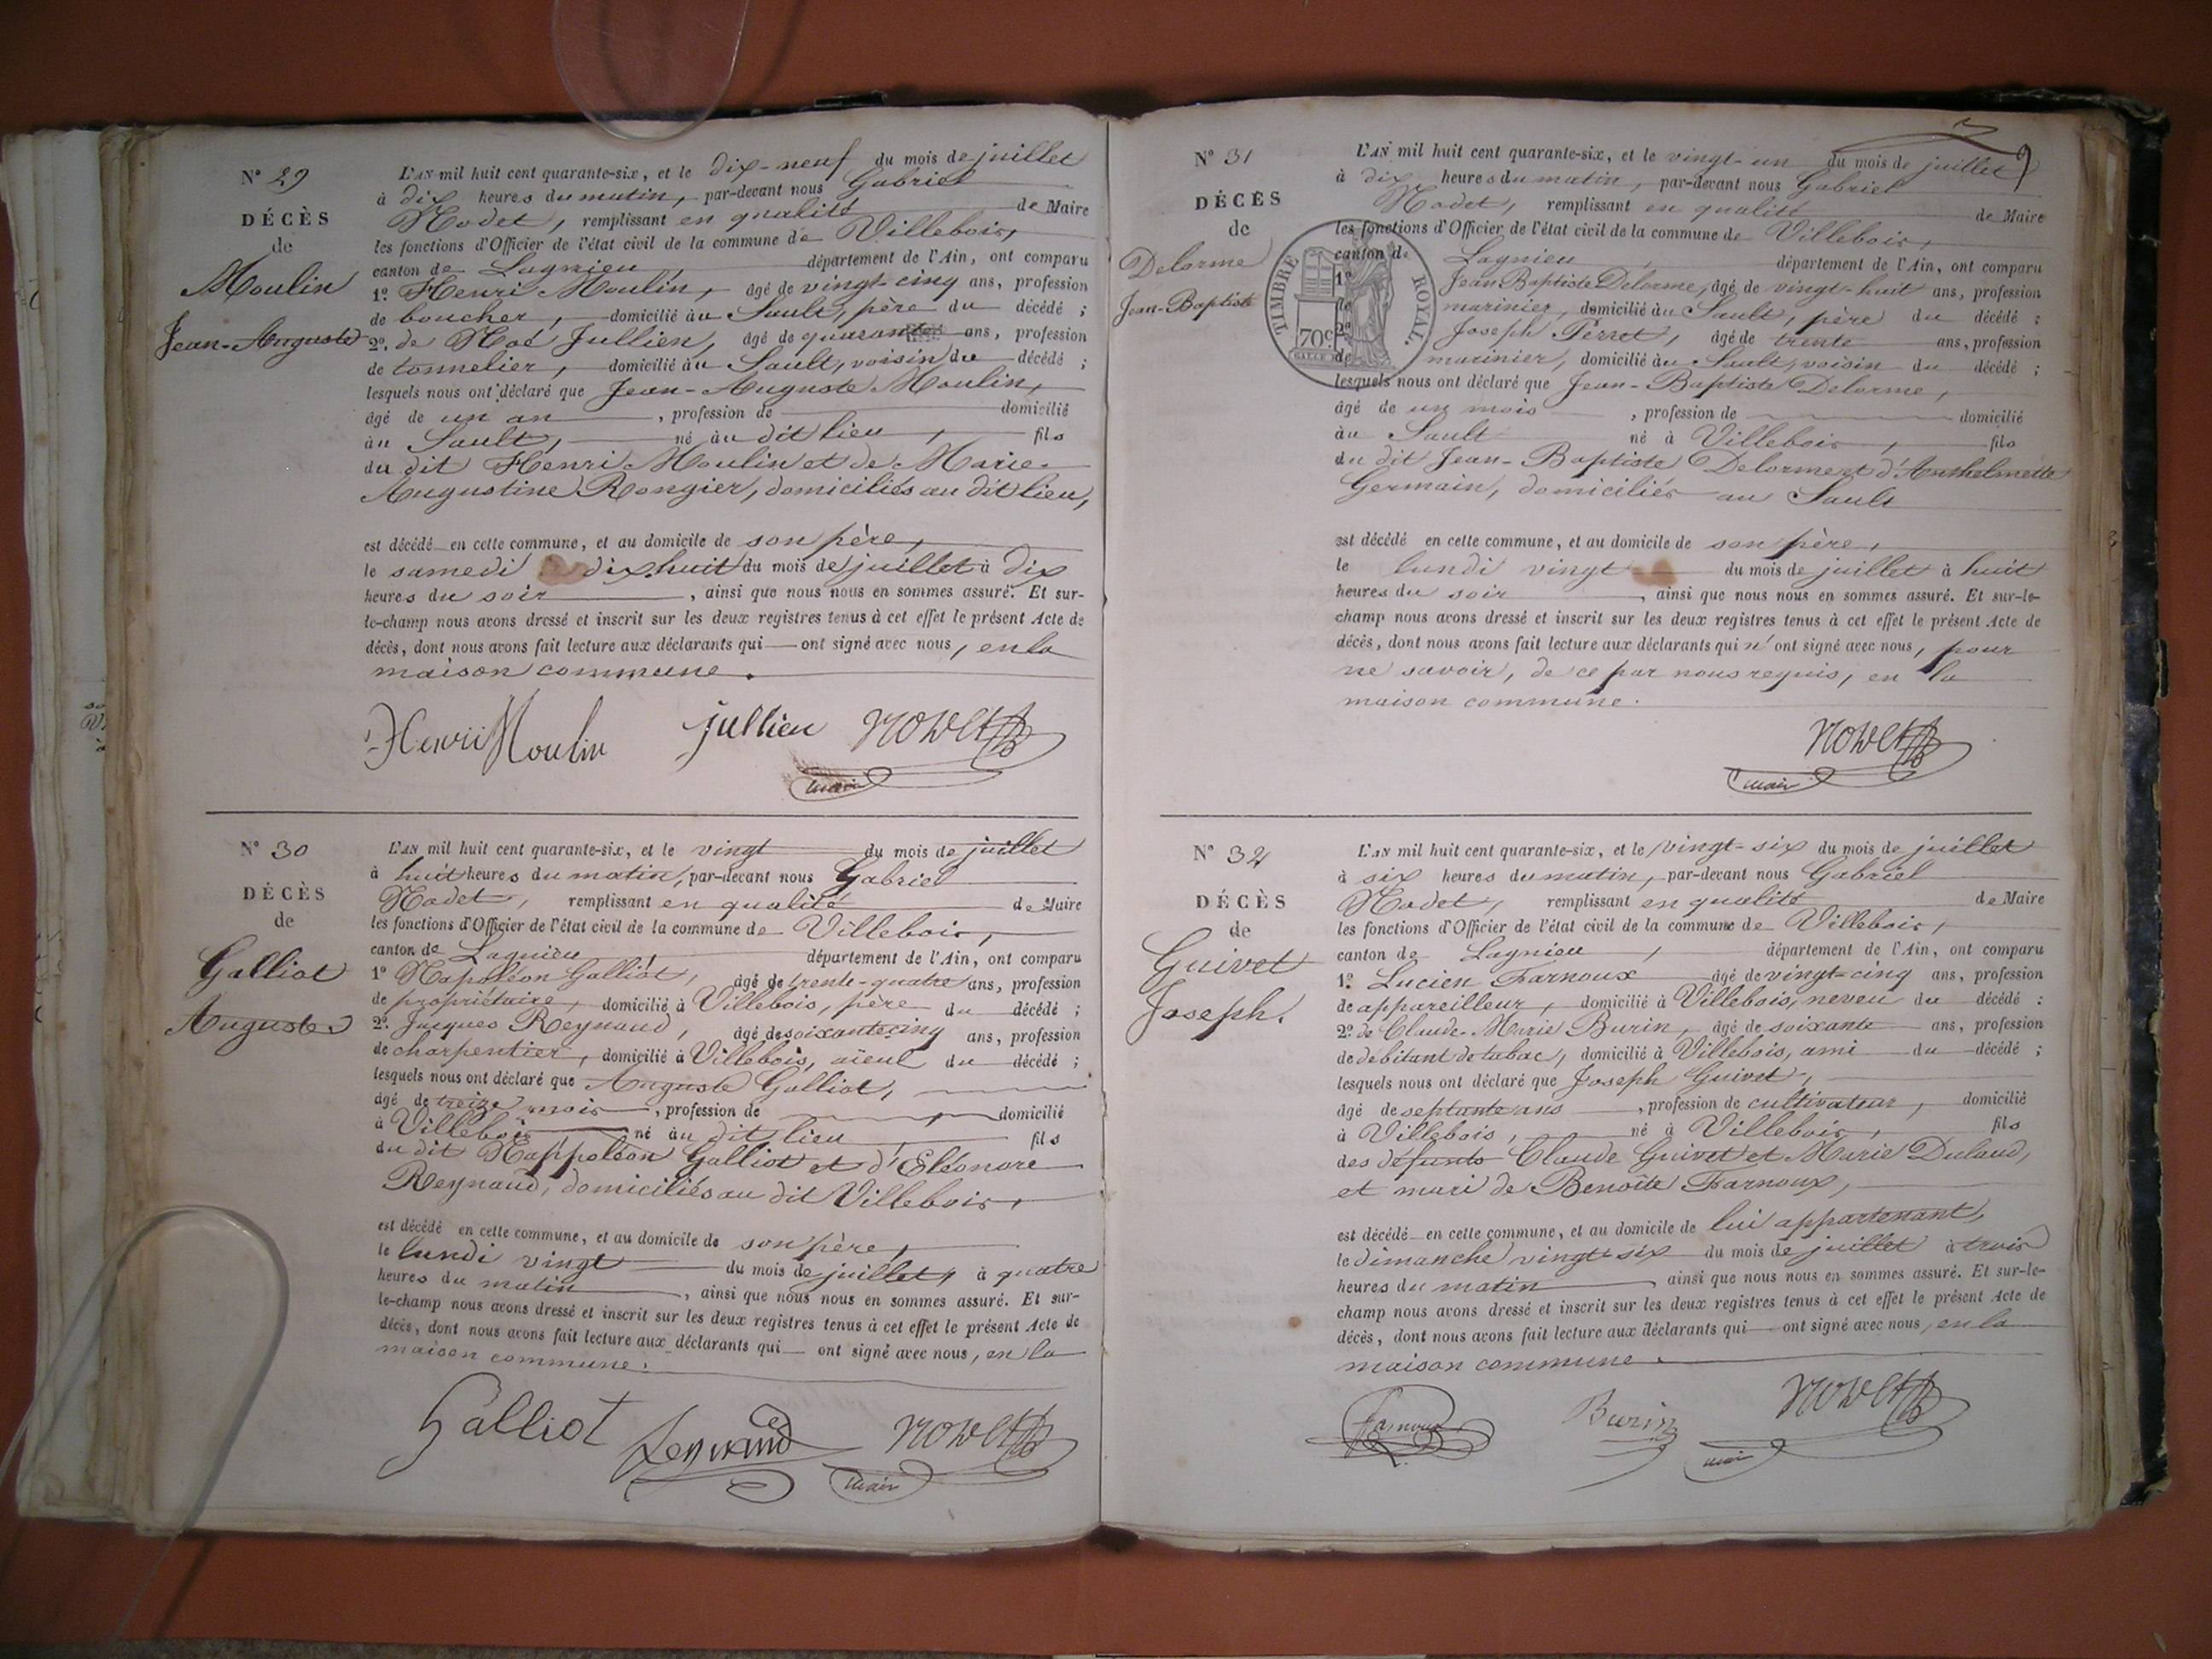 N° 29
DÉCÈS
de
Moulin
Jean-Auguste
L'AN mil huit cent quarante-six, et le dix-neuf du mois de juillet
à dix heures du matin, par-devant nous Gabriel
Nodet, remplissant en qualité de Maire
les fonctions d'Officier de l'état civil de la commune de Villebois,
canton de Lagnieu, département de l'Ain, ont comparu
1° Henri Moulin, âgé de vingt-cinq ans, profession
de boucher, domicilié au Sault, père du décédé ;
2° de Noé Jullien, âgé de quarante ans, profession
de tonnelier, domicilié au Sault, voisin du décédé ;
lesquels nous ont déclaré que Jean-Auguste Moulin,
âgé de un an, profession de domicilié
au Sault, né au dit lieu, fils
du dit Henri Moulin et de Marie-
Augustine Rongier, domiciliés au dit lieu,
est décédé en cette commune, et au domicile de son père,
le samedi dix-huit du mois de juillet à dix
heures du soir, ainsi que nous nous en sommes assuré. Et sur-
le-champ nous avons dressé et inscrit sur les deux registres tenus à cet effet le présent Acte de
décès, dont nous avons fait lecture aux déclarants qui ont signé avec nous, en la
maison commune.
Henri Moulin Jullien Nodet
maire
N° 30
DÉCÈS
de
Galliot
Auguste
L'AN mil huit cent quarante-six, et le vingt du mois de juillet
à huit heures du matin, par-devant nous Gabriel
Nodet, remplissant en qualité de Maire
les fonctions d'Officier de l'état civil de la commune de Villebois,
canton de Lagnieu, département de l'Ain, ont comparu
1° Napoléon Galliot, âgé de trente-quatre ans, profession
de propriétaire, domicilié à Villebois, père du décédé ;
2° Jacques Reynaud, âgé de soixante cinq ans, profession
de charpentier, domicilié à Villebois, aïeul du décédé ;
lesquels nous ont déclaré que Auguste Galliot,
âgé de treize mois, profession de domicilié
à Villebois né au dit lieu fils
du dit Nappoléon Galliot et d'Eléonore
Reynaud, domiciliés au dit Villebois,
est décédé en cette commune, et au domicile de son père,
le lundi vingt du mois de juillet, à quatre
heures du matin, ainsi que nous nous en sommes assuré. Et sur-
le-champ nous avons dressé et inscrit sur les deux registres tenus à cet effet le présent Acte de
décès, dont nous avons fait lecture aux déclarants qui ont signé avec nous, en la
maison commune.
Galliot Reynaud Nodet
maire
N° 31
DÉCÈS
de
Delorme
Jean-Baptiste
TIMBRE ROYAL.
70c
L'AN mil huit cent quarante-six, et le vingt-un du mois de juillet
à dix heures du matin, par-devant nous Gabriel
Nodet, remplissant en qualité de Maire
les fonctions d'Officier de l'état civil de la commune de Villebois,
canton de Lagnieu, département de l'Ain, ont comparu
1° Jean Baptiste Delorme, âgé de vingt-huit ans, profession
de marinier, domicilié au Sault, père du décédé ;
2° Joseph Perret, âgé de trente ans, profession
de marinier, domicilié au Sault, voisin du décédé ;
lesquels nous ont déclaré que Jean-Baptiste Delorme,
âgé de un mois, profession de domicilié
au Sault né à Villebois, fils
du dit Jean-Baptiste Delorme et d'Anthelmette
Germain, domiciliés au Sault
est décédé en cette commune, et au domicile de son père,
le lundi vingt du mois de juillet à huit
heures du soir, ainsi que nous nous en sommes assuré. Et sur-le-
champ nous avons dressé et inscrit sur les deux registres tenus à cet effet le présent Acte de
décès, dont nous avons fait lecture aux déclarants qui n'ont signé avec nous, pour
ne savoir, de ce par nous requis, en la
maison commune.
Nodet
maire
N° 32
DÉCÈS
de
Guivet
Joseph.
L'AN mil huit cent quarante-six, et le vingt-six du mois de juillet
à six heures du matin, par-devant nous Gabriel
Nodet, remplissant en qualité de Maire
les fonctions d'Officier de l'état civil de la commune de Villebois,
canton de Lagnieu, département de l'Ain, ont comparu
1° Lucien Farnoux âgé de vingt-cinq ans, profession
de appareilleur, domicilié à Villebois, neveu du décédé :
2° de Claude-Marie Burin, âgé de soixante ans, profession
de debitant de tabac, domicilié à Villebois, ami du décédé ;
lesquels nous ont déclaré que Joseph Guivet,
âgé de septante ans, profession de cultivateur, domicilié
à Villebois, né à Villebois, fils
des défunts Claude Guivet et Marie Dulaud,
et mari de Benoite Farnoux,
est décédé en cette commune, et au domicile de lui appartenant,
le dimanche vingt-six du mois de juillet à trois
heures du matin, ainsi que nous nous en sommes assuré. Et sur-le-
champ nous avons dressé et inscrit sur les deux registres tenus à cet effet le présent Acte de
décès, dont nous avons fait lecture aux déclarants qui ont signé avec nous, en la
maison commune.
Farnoux Burin Nodet
maire